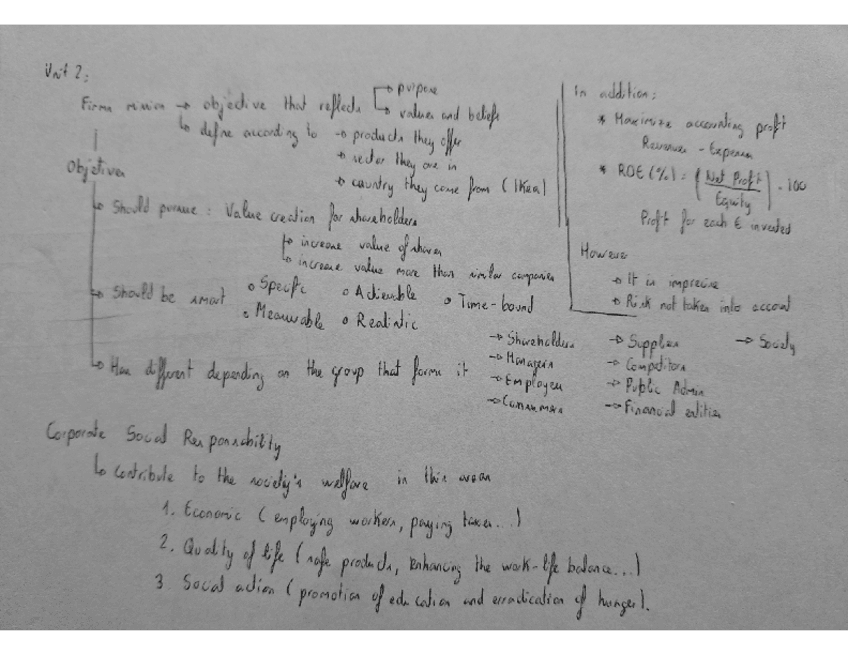 Unit 2:
Firms mission → objective that reflects → purpose
→ values and beliefs
↳ define according to → products they offer
→ sector they are in
→ country they come from (IKea)
Objetives
↳ Should pursue: Value creation for shareholders
↳ increase value of shares
↳ increase value more than similar companies
↳ Should be smart
o Specific
o Achievable
o Time-bound
o Measurable
o Realistic
↳ Has different depending on the group that forms it
→ Shareholders
→ Managers
→ Employees
→ Consumers
→ Suppliers
→ Competitors
→ Public Admin
→ Financial entities
→ Society
In addition:
* Maximize accounting profit
Revenues - Expenses
* ROE (%) = (Net Profit / Equity) · 100
Profit for each € invested
However
→ It is imprecise
→ Risk not taken into account
Corporate Social Responsability
↳ contribute to the society's welfare in this areas
1. Economic (employing workers, paying taxes...)
2. Quality of life (safe products, enhancing the work-life balance...)
3. Social action (promotion of education and erradication of hunger).